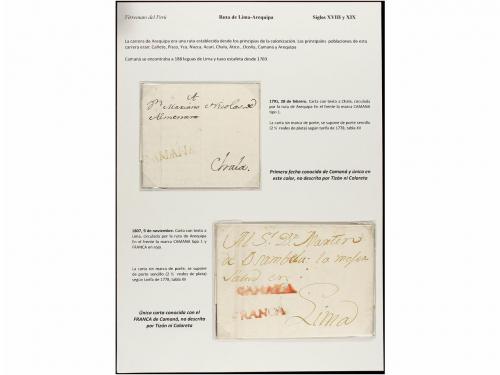 Fitreman del Perú
Ruta de Lima-Arequipa
Siglos XVIII y XIX
La carrera de Arequipa era una ruta establecida desde los principios de la colonización. Las principales poblaciones de esta
carrera eran: Cañete, Pisco, Yca, Nazca, Acarí, Chala, Atico, Ocoña, Camaná y Arequipa
Camaná se encontraba a 188 leguas de Lima y tuvo estafeta desde 1769.
A
Mariano Nicolas
Almenara
CAMANA
Chala.
1795, 28 de febrero. Carta con texto a Chala, circulada
por la ruta de Arequipa En el frente la marca CAMANA
tipo 1.
La carta sin marca de porte, se supone de porte sencillo
(2 ½ reales de plata) según tarifa de 1778, tabla XII
Primera fecha conocida de Camaná y única en
este color, no descrita por Tizón ni Colareta
1807, 5 de noviembre. Carta con texto a
Lima, circulada por la ruta de Arequipa
En el frente la marca CAMANA tipo 1 y
FRANCA en rojo.
La carta sin marca de porte, se supone
de porte sencillo (2 ½ reales de plata)
según tarifa de 1778, tabla XII
Única carta conocida con el
FRANCA de Camaná, no descrita
por Tizón ni Colareta
Al S. Dn
de la
salud en
CAMANA
FRANCA
Lima